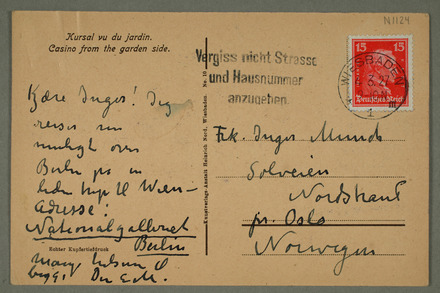 N1124
Kursal vu du jardin.
Casino from the garden side.
Vergiss nicht Strasse
und Hausnummer
anzugeben
15 15
Deutsches Reich
WIESBADEN
1
Kjære Inger! Jeg
reiser nu
muligt over
Berlin på en
liden tripp til Wien –
Adresse:
Nationalgalleriet
Berlin
Mange hilsener
Din E.M.
Echter Kupfertiefdruck
Kunstverlags-Anstalt Heinrich Nord, Wiesbaden No. 10
Frk. Inger Munch
Solveien
Nordstrand
pr. Oslo
Norwegen